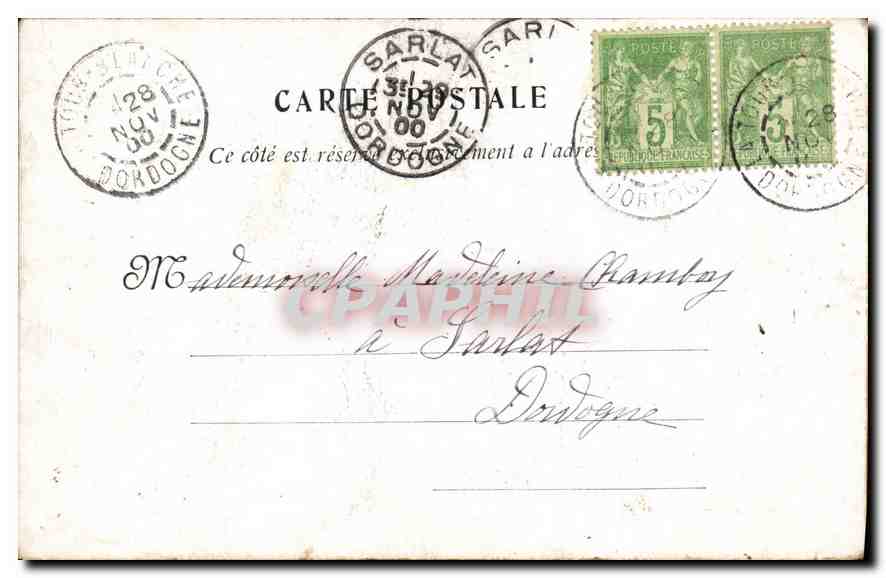 SARLAT
28
NOV
00
DORDOGNE
SARL
POSTE POSTE
5 5
REPUBLIQUE FRANCAISE
28
DORDOGNE
DORDOGNE
LA TOUR-BLANCHE
28
NOV
00
DORDOGNE
CARTE POSTALE
Ce côté est réservé exclusivement a l'adres
Mademoiselle Madeleine Chamboy
à Sarlat
Dordogne
CPAPHIL